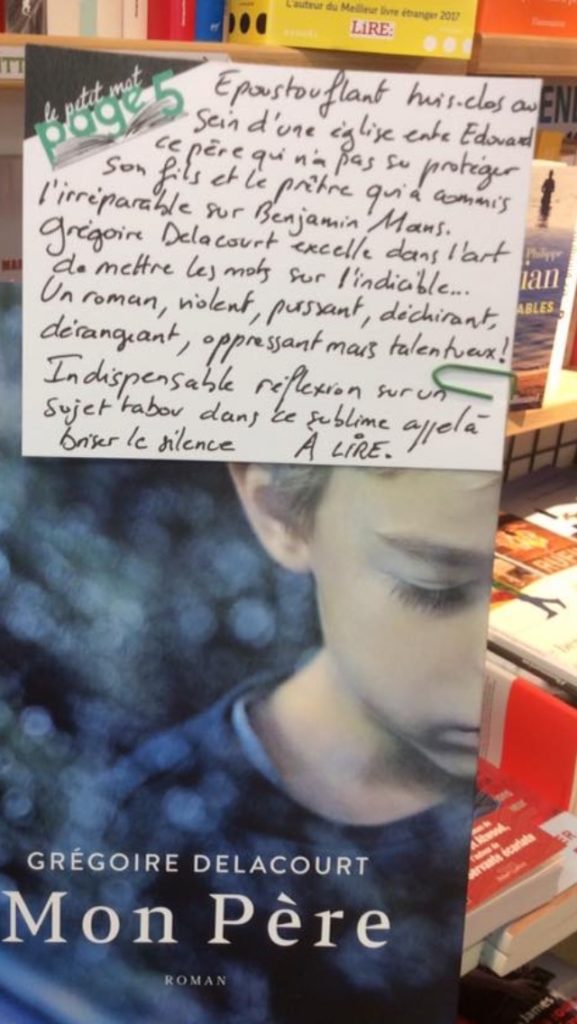 L'auteur du Meilleur livre étranger 2017
LiRE:
le petit mot
page 5
Epoustouflant huis-clos au
sein d'une église entre Edouard
ce père qui n'a pas su protéger
son fils et le prêtre qui a commis
l'irréparable sur Benjamin Mans.
Grégoire Delacourt excelle dans l'art
de mettre les mots sur l'indicible...
Un roman, violent, puissant, déchirant,
dérangeant, oppressant mais talentueux!
Indispensable réflexion sur un
sujet tabou dans ce sublime appel à
briser le silence À LIRE.
Philippe
ABLES
GRÉGOIRE DELACOURT
Mon Père
ROMAN